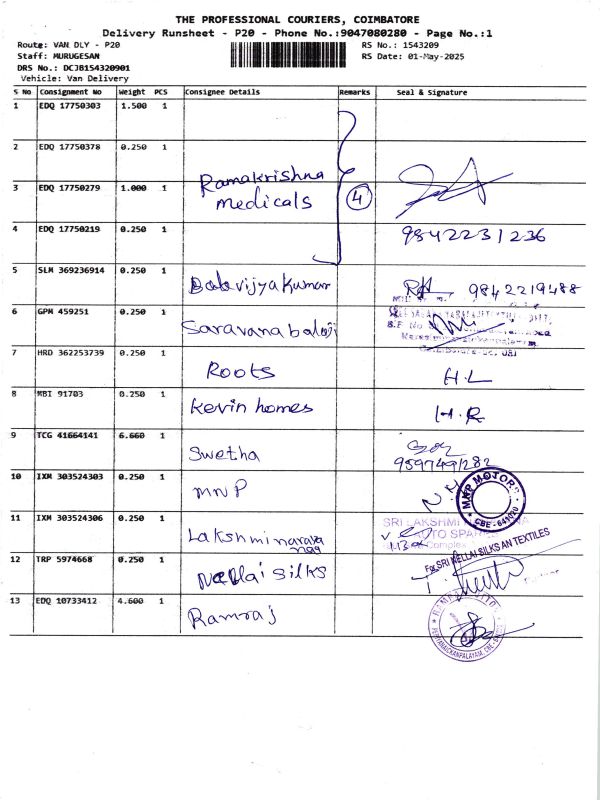 THE PROFESSIONAL COURIERS, COIMBATORE
Delivery Runsheet - P20 - Phone No.:9047080280 - Page No.:1
Route: VAN DLY - P20
RS No.: 1543209
Staff: MURUGESAN
RS Date: 01-May-2025
DRS No.: DCJB154320901
Vehicle: Van Delivery
S No Consignment No Weight PCS Consignee Details Remarks Seal & Signature
1 EDQ 17750303 1.500 1
2 EDQ 17750378 0.250 1
3 EDQ 17750279 1.000 1 Ramakrishna medicals 4
4 EDQ 17750219 0.250 1 9842231236
5 SLM 369236914 0.250 1 Balavijyakumar 9842219488
6 GPM 459251 0.250 1 Saravana balaji
7 HRD 362253739 0.250 1 Roots H.L
8 MBI 91703 0.250 1 Kevin homes H.R
9 TCG 41664141 6.660 1 Swetha 9597491282
10 IXM 303524303 0.250 1 MNP MNP MOTORS CBE-641020
11 IXM 303524306 0.250 1 Lakshmi SRI LAKSHMI AUTO SPARES Complex
12 TRP 5974668 0.250 1 Nellai Silks For SRI NELLAI SILKS AN TEXTILES
13 EDQ 10733412 4.600 1 Ramraj